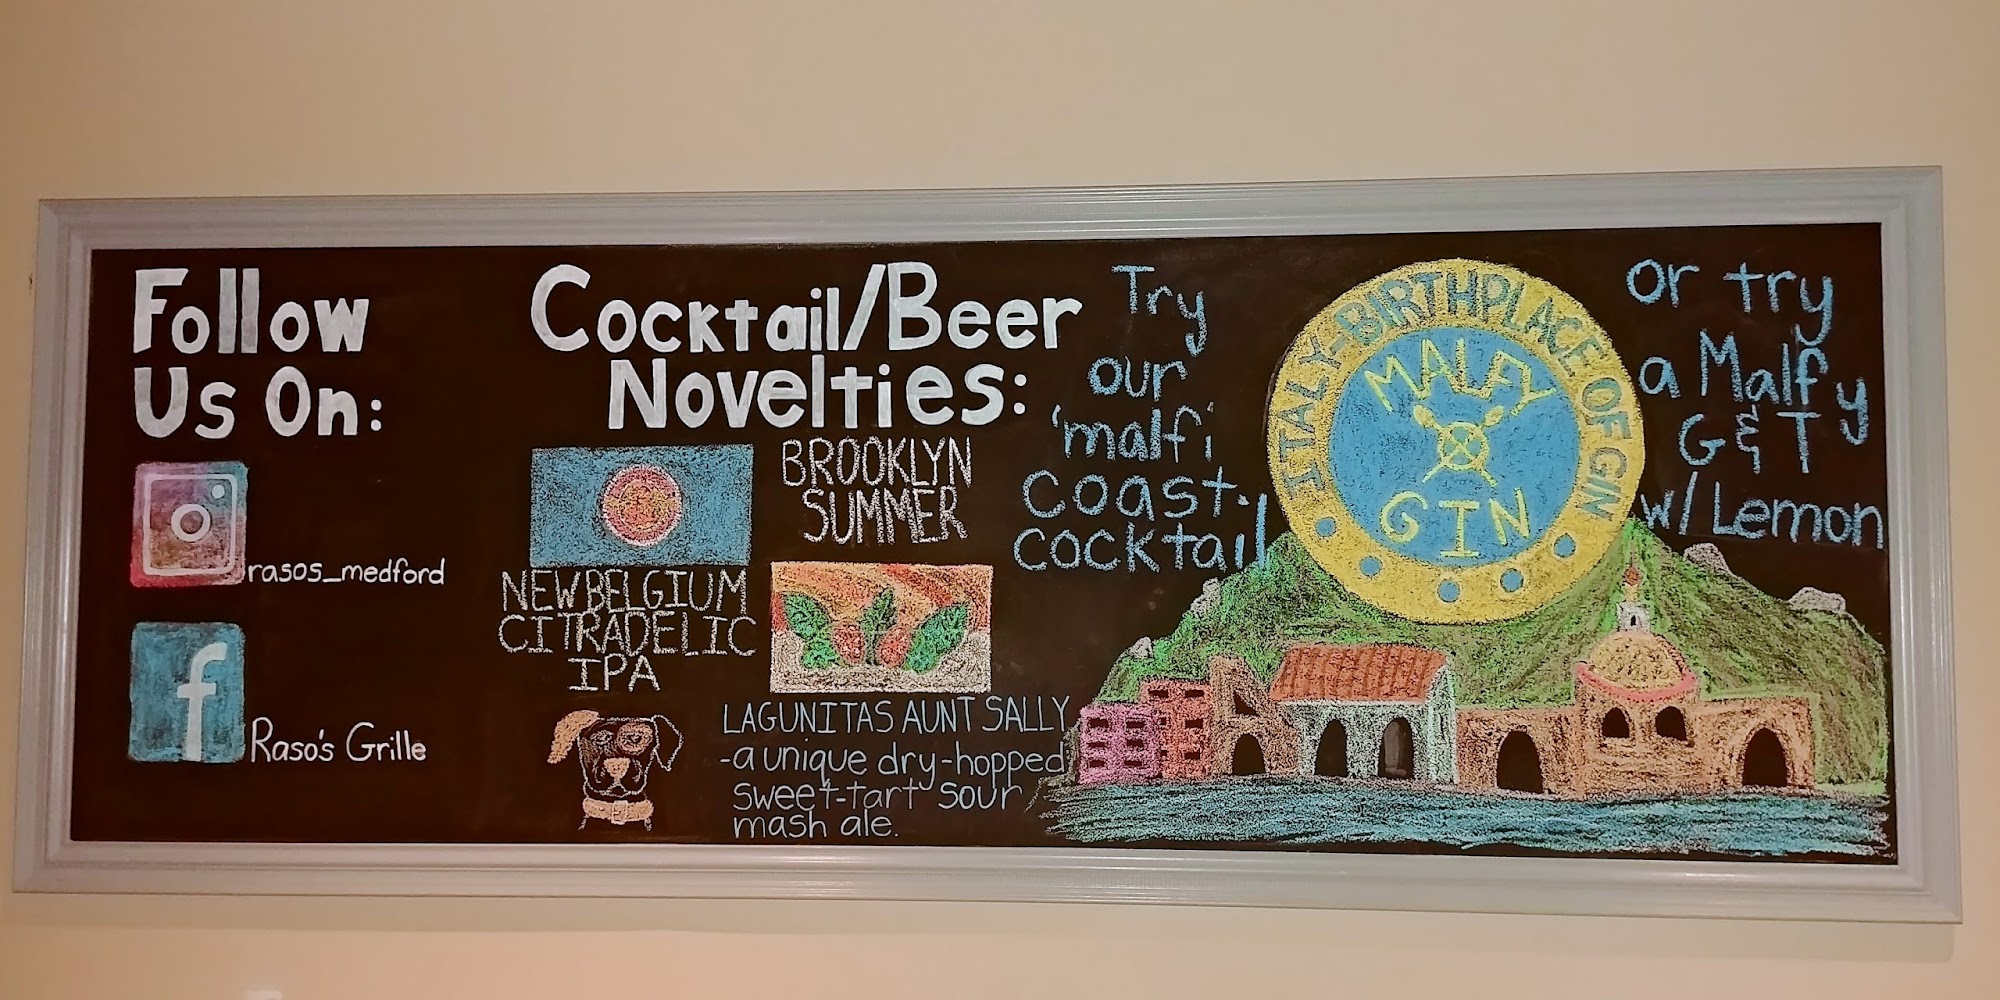 Follow
Us On:
rasos_medford
f
Raso's Grille
Cocktail/Beer
Novelties:
NEW BELGIUM
CITRADELIC
IPA
BROOKLYN
SUMMER
LAGUNITAS AUNT SALLY
-a unique dry-hopped
sweet-tart sour
mash ale.
Try
our
'malfi
Coast
cocktail
ITALY-BIRTHPLACE OF GIN
MALFY
GIN
or try
a Malfy
G & T
w/ Lemon